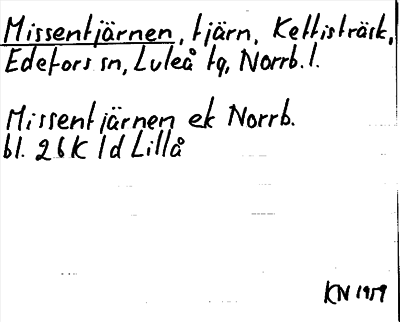 Missentjärnen, tjärn, Kettisträsk,
Edefors sn, Luleå tg, Norrb. l.
Missentjärnen ek Norrb.
bl. 26K 1d Lillå
KN 1959